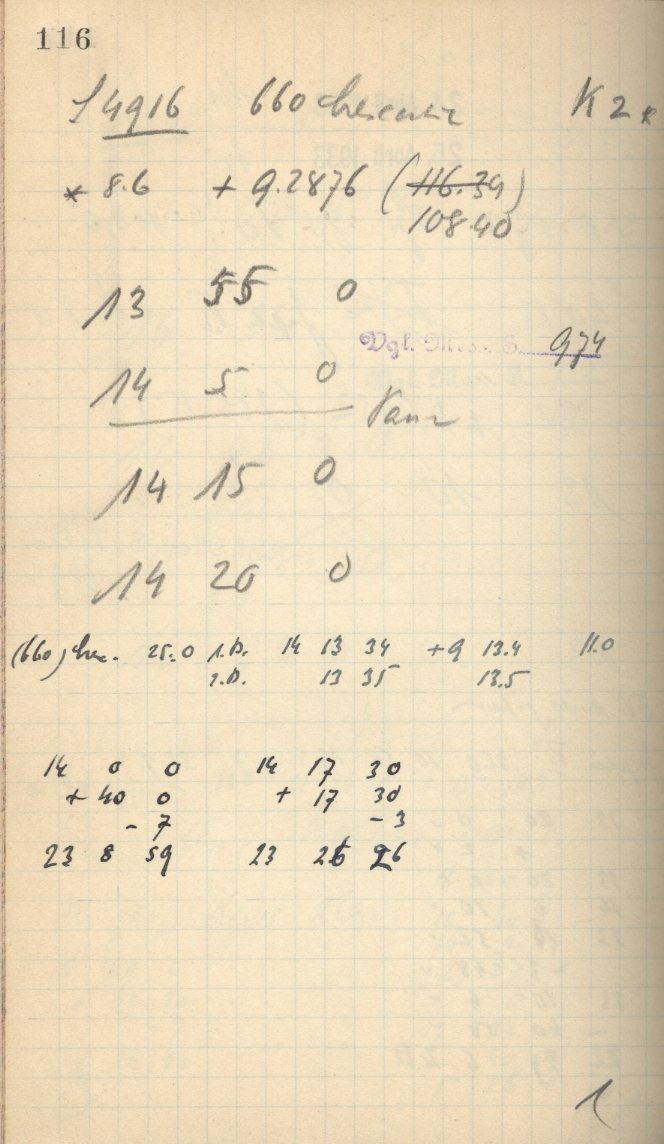 116
J 4916 660 Crescentia K 2
* 8.6 + 9.2876 (116.34)
108.40
13 55 0
Vgl. Mess. S. 974
14 5 0
14 15 0
14 20 0
(660) Cresc. 25.0 1.B. 14 13 34 +9 13.4 11.0
2.B. 13 35 13.5
14 0 0 14 17 30
+ 40 0 + 17 30
- 7 - 3
23 8 59 23 26 26
1